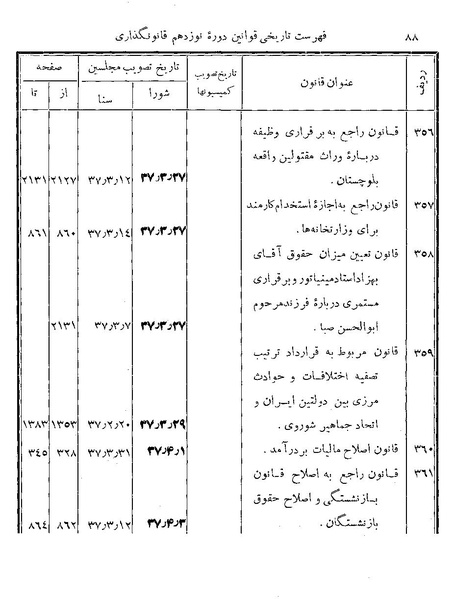 ۸۸ فهرست تاریخی قوانین دورهٔ نوزدهم قانونگذاری
ردیف عنوان قانون تاریخ تصویب کمیسیونها تاریخ تصویب مجلسین صفحه
شورا سنا از تا
۳۵۶ قانون راجع به برقراری وظیفه
دربارهٔ وراث مقتولین واقعه
بلوچستان . ۳۷٫۳٫۲۷ ۳۷٫۳٫۱۲ ۲۱۲۷ ۲۱۳۱
۳۵۷ قانون راجع به اجازهٔ استخدام کارمند
برای وزارتخانه‌ها . ۳۷٫۳٫۲۷ ۳۷٫۳٫۱۴ ۸۶۰ ۸۶۱
۳۵۸ قانون تعیین میزان حقوق آقای
بهزاد استاد مینیاتور و برقراری
مستمری دربارهٔ فرزند مرحوم
ابوالحسن صبا . ۳۷٫۳٫۲۷ ۳۷٫۳٫۷ ۲۱۳۱
۳۵۹ قانون مربوط به قرارداد ترتیب
تصفیه اختلافات و حوادث
مرزی بین دولتین ایران و
اتحاد جماهیر شوروی . ۳۷٫۳٫۲۹ ۳۷٫۲٫۲۰ ۱۳۵۳ ۱۳۸۳
۳۶۰ قانون اصلاح مالیات بر درآمد . ۳۷٫۴٫۱ ۳۷٫۳٫۳۱ ۳۲۸ ۳۴۵
۳۶۱ قانون راجع به اصلاح قانون
بازنشستگی و اصلاح حقوق
بازنشستگان . ۳۷٫۴٫۳ ۳۷٫۳٫۱۲ ۸۶۲ ۸۶۴